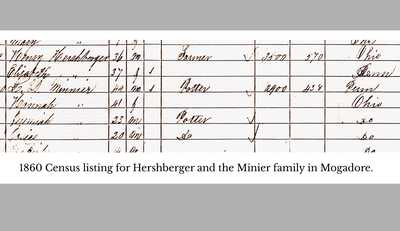 Mary " 1 f
Henry Hershberger 36 m Farmer 2500 570 Ohio
Elizabeth " 37 f 1 Penn
Minnier m 1 Potter 2900 Penn
Hannah " 41 f Ohio
Jeremiah " 23 m Potter do
" 20 m do do
1860 Census listing for Hershberger and the Minier family in Mogadore.